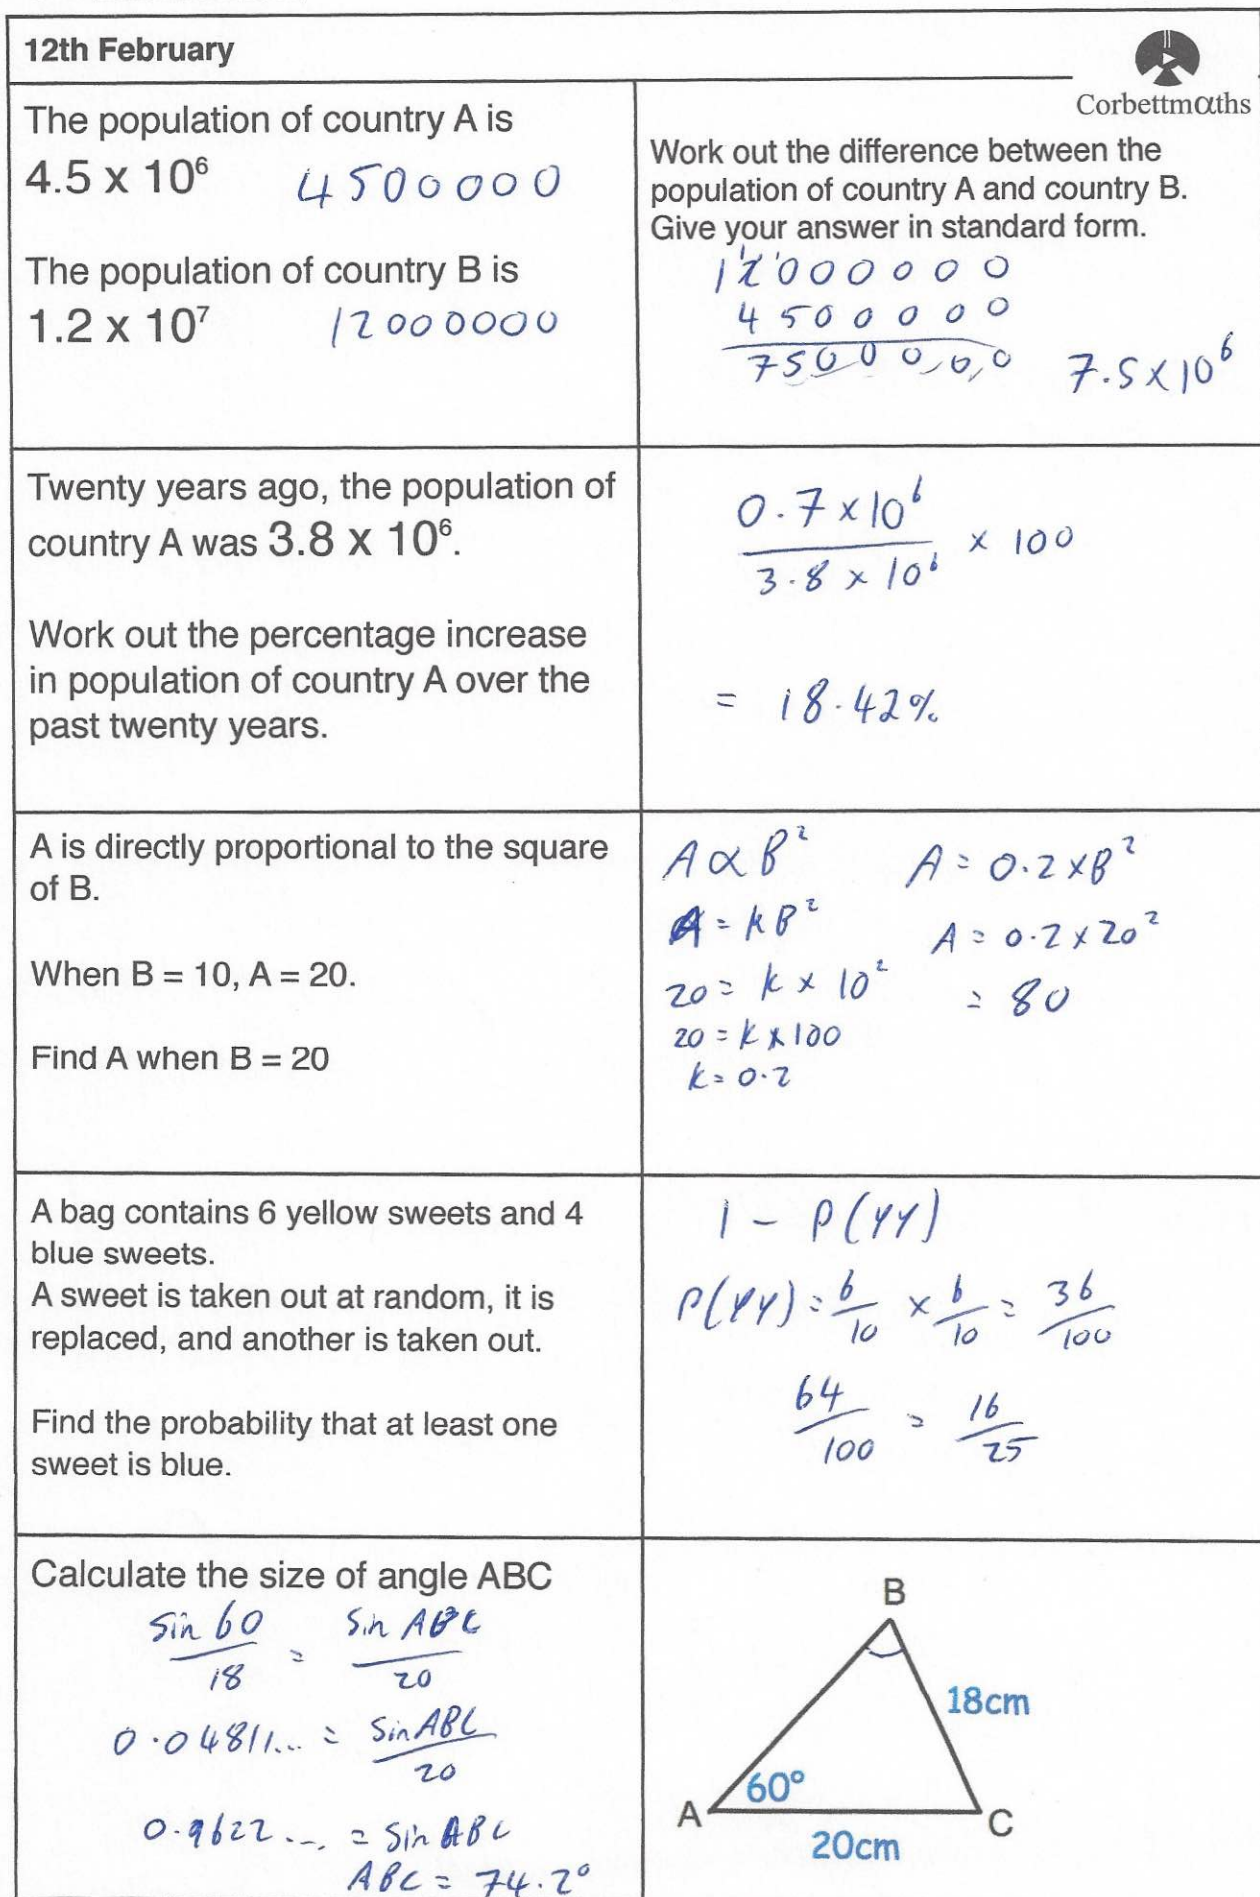 12th February
Corbettmαths
The population of country A is
4.5 x 10⁶ 4500000
The population of country B is
1.2 x 10⁷ 12000000
Work out the difference between the
population of country A and country B.
Give your answer in standard form.
12000000
4500000
7500000 7.5 x 10⁶
Twenty years ago, the population of
country A was 3.8 x 10⁶.
Work out the percentage increase
in population of country A over the
past twenty years.
0.7 x 10⁶
3.8 x 10⁶
x 100
= 18.42%
A is directly proportional to the square
of B.
When B = 10, A = 20.
Find A when B = 20
A ∝ B²
A = kB²
20 = k x 10²
20 = k x 100
k = 0.2
A = 0.2 x B²
A = 0.2 x 20²
= 80
A bag contains 6 yellow sweets and 4
blue sweets.
A sweet is taken out at random, it is
replaced, and another is taken out.
Find the probability that at least one
sweet is blue.
1 - P(YY)
P(YY) = 6/10 x 6/10 = 36/100
64/100 = 16/25
Calculate the size of angle ABC
sin 60/18 = sin ABC/20
0.04811... = sin ABC/20
0.9622... = sin ABC
ABC = 74.2°
B
18cm
60°
A
C
20cm